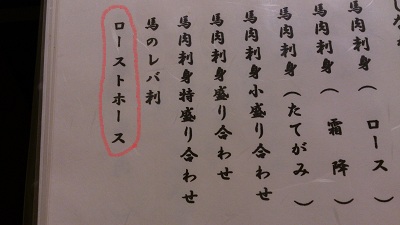 馬肉刺身（ロース）
馬肉刺身（霜降）
馬肉刺身（たてがみ）
馬肉刺身小盛り合わせ
馬肉刺身盛り合わせ
馬肉刺身特盛り合わせ
馬のレバ刺
ローストホース